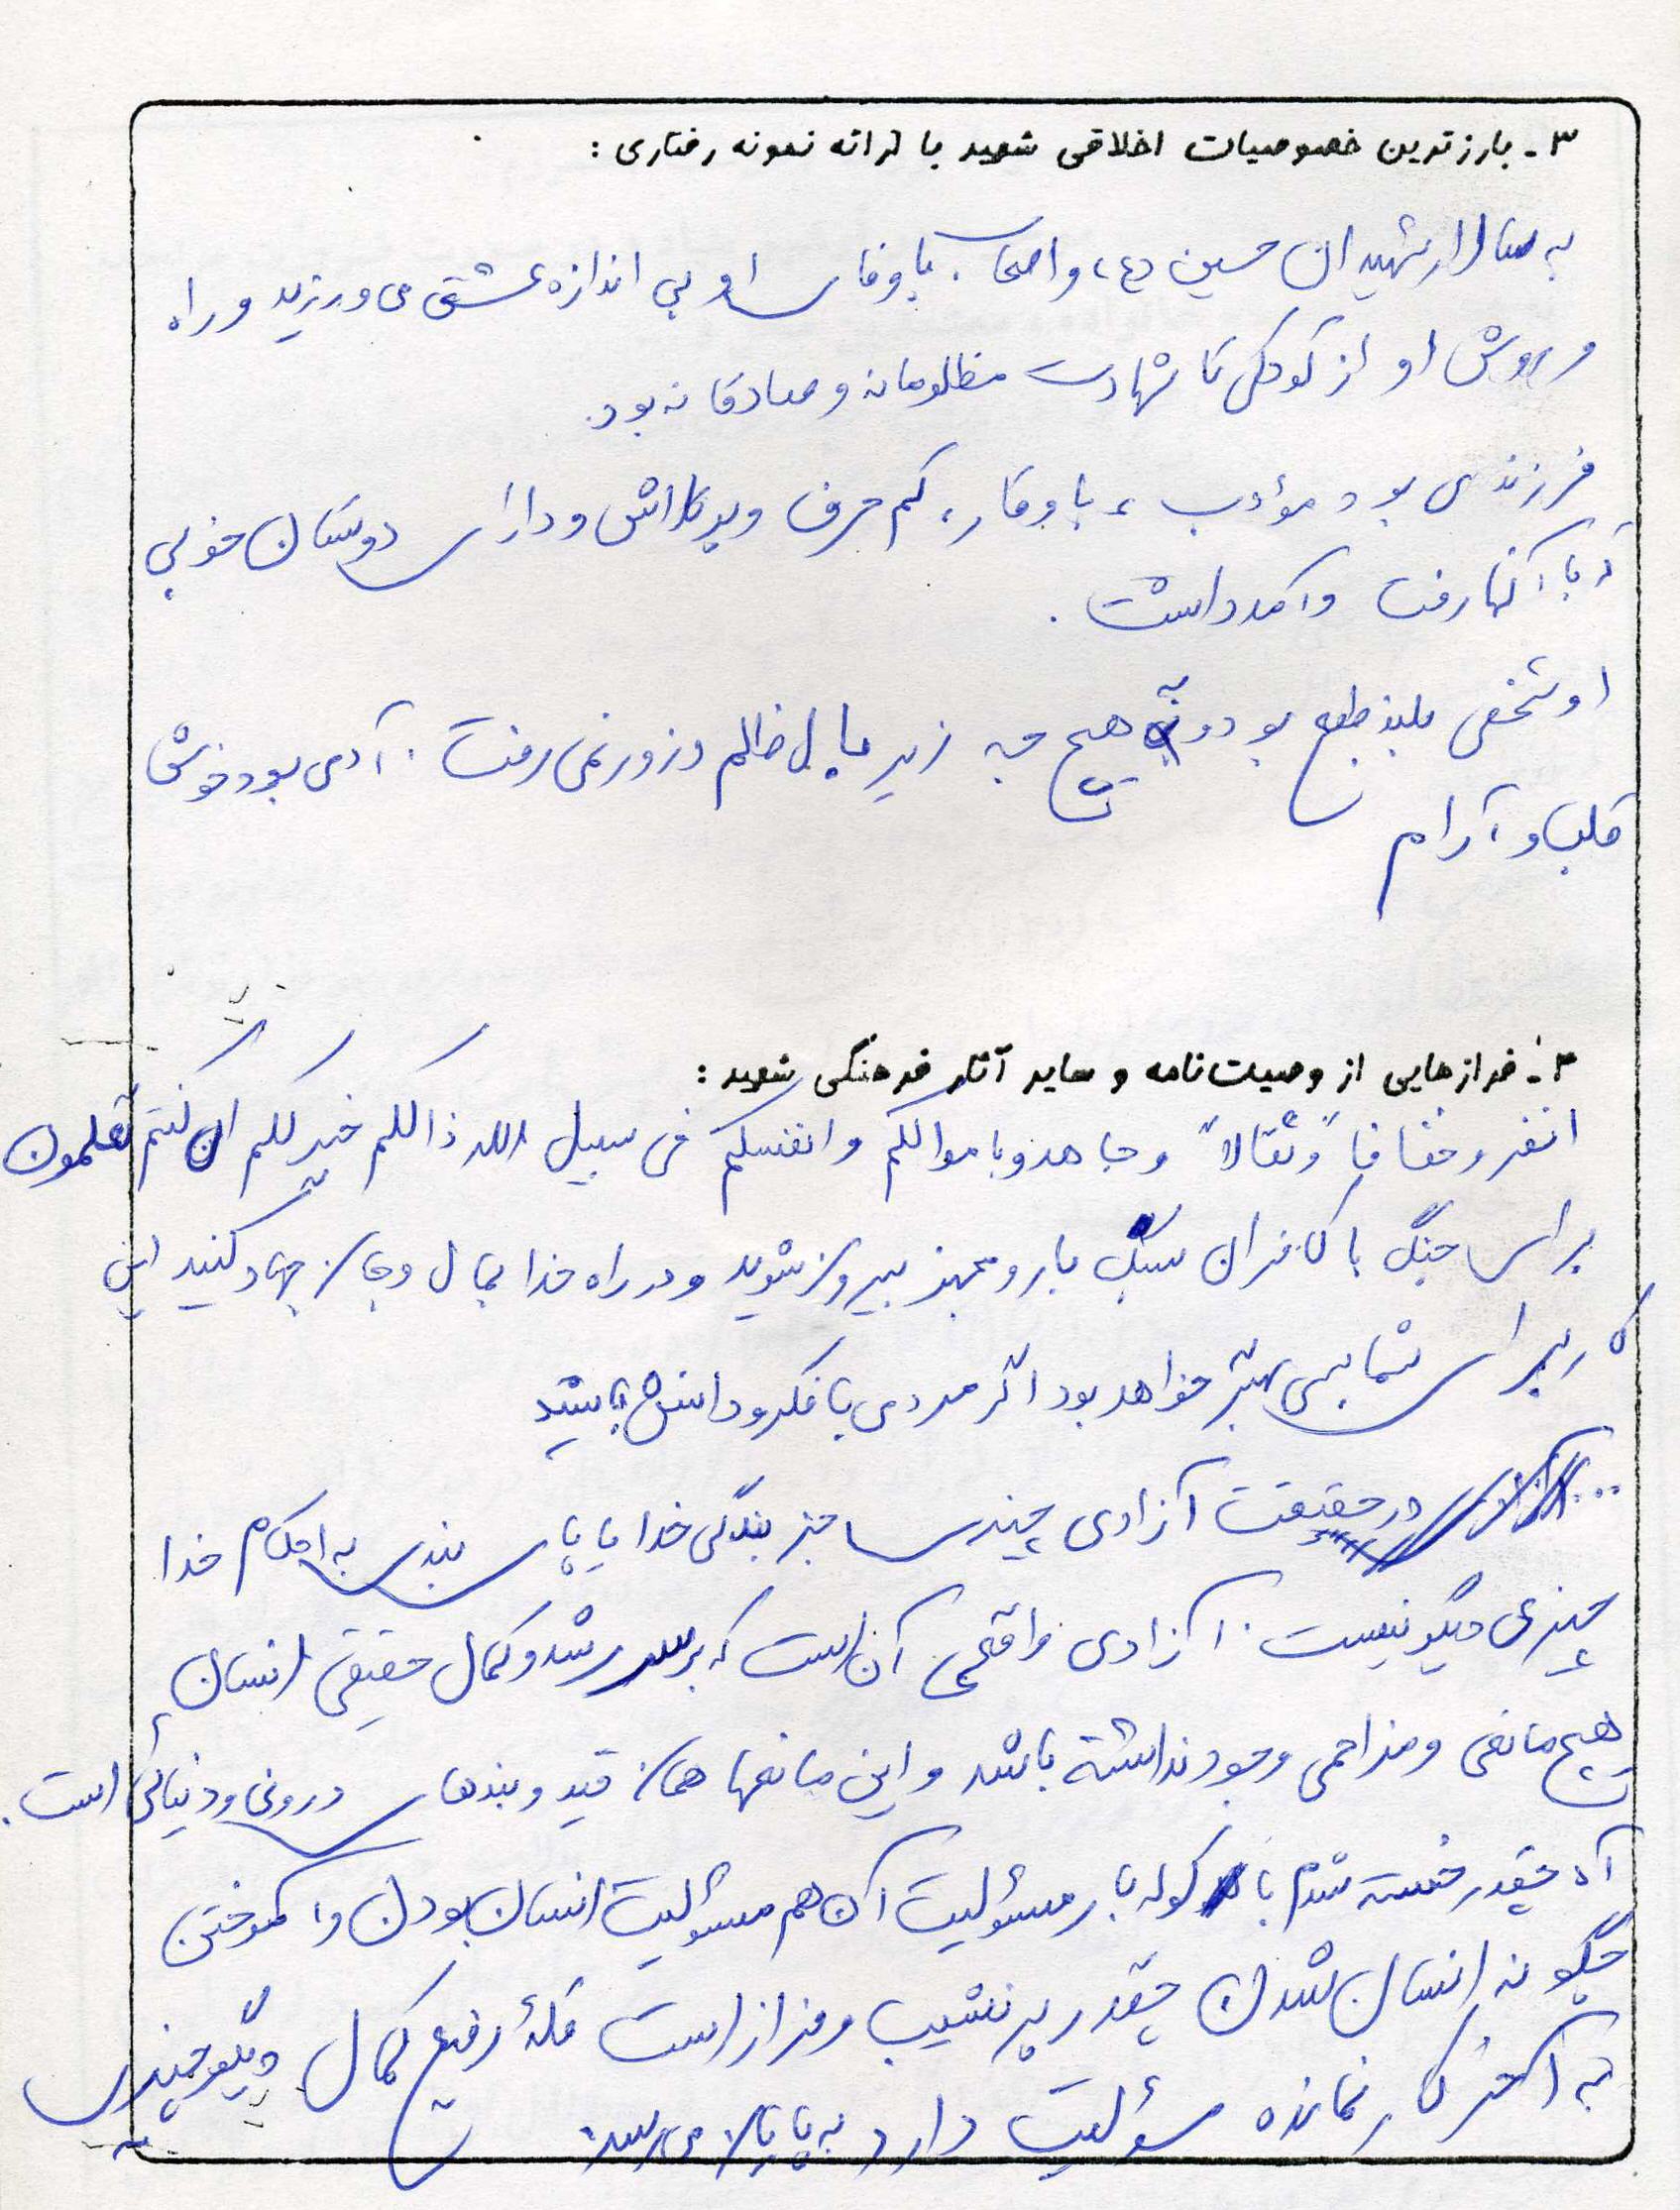 ۳- بارزترین خصوصیات اخلاقی شهید با ارائه نمونه رفتاری:
به سالار شهیدان حسین (ع) و اصحاب باوفای او بی اندازه عشق می ورزید و راه
و روش او از کودکی تا شهادت مظلومانه و صادقانه بود.
فرزندی بود مؤدب، با وقار، کم حرف و پرتلاش و دارای دوستان خوبی
که با آنها رفت و آمد داشت.
او شخصی بلند طبع بود و به هیچ وجه زیر بار ظالم و زور نمی رفت. آدمی بود خوش
قلب و آرام
۴- فرازهایی از وصیت‌نامه و سایر آثار فرهنگی شهید:
انفروخفافا" وثقالا" وجاهدوباموالکم وانفسکم فی سبیل الله ذالکم خیرلکم ان کنتم تعلمون
برای جنگ با کافران سبک بار و مجهز بیرون شوید و در راه خدا بمال و جان جهاد کنید این
کار برای شما بسی بهتر خواهد بود اگر مردمی با فکر و دانش باشید
... در حقیقت آزادی چیزی جز بندگی خدا یا پای بندی به احکام خدا
چیزی دیگر نیست. آزادی واقعی آن است که بر سر رشد و کمال حقیقی انسان
هیچ مانعی و مزاحمی وجود نداشته باشد و این مانعها همان قید و بندهای درونی و دنیائی است.
آه چقدر خسته شدم با کوله بار مسئولیت آن هم مسئولیت انسان بودن و آموختن
چگونه انسان شدن چقدر پر نشیب و فراز است قلهٔ رفیع کمال دیگر چیزی
به آخر کار نمانده مسئولیت دارد به پایان می رسد.